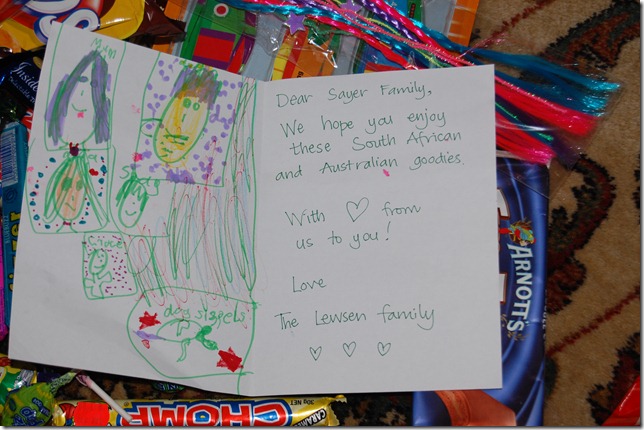 Dear Sayer Family,
We hope you enjoy
these South African
and Australian goodies.
With ♡ from
us to you!
Love
The Lewsen family
♡ ♡ ♡
MAM
dog sispels
ARNOTT'S
CHOMP
30g NET
CARAMEL
Inside